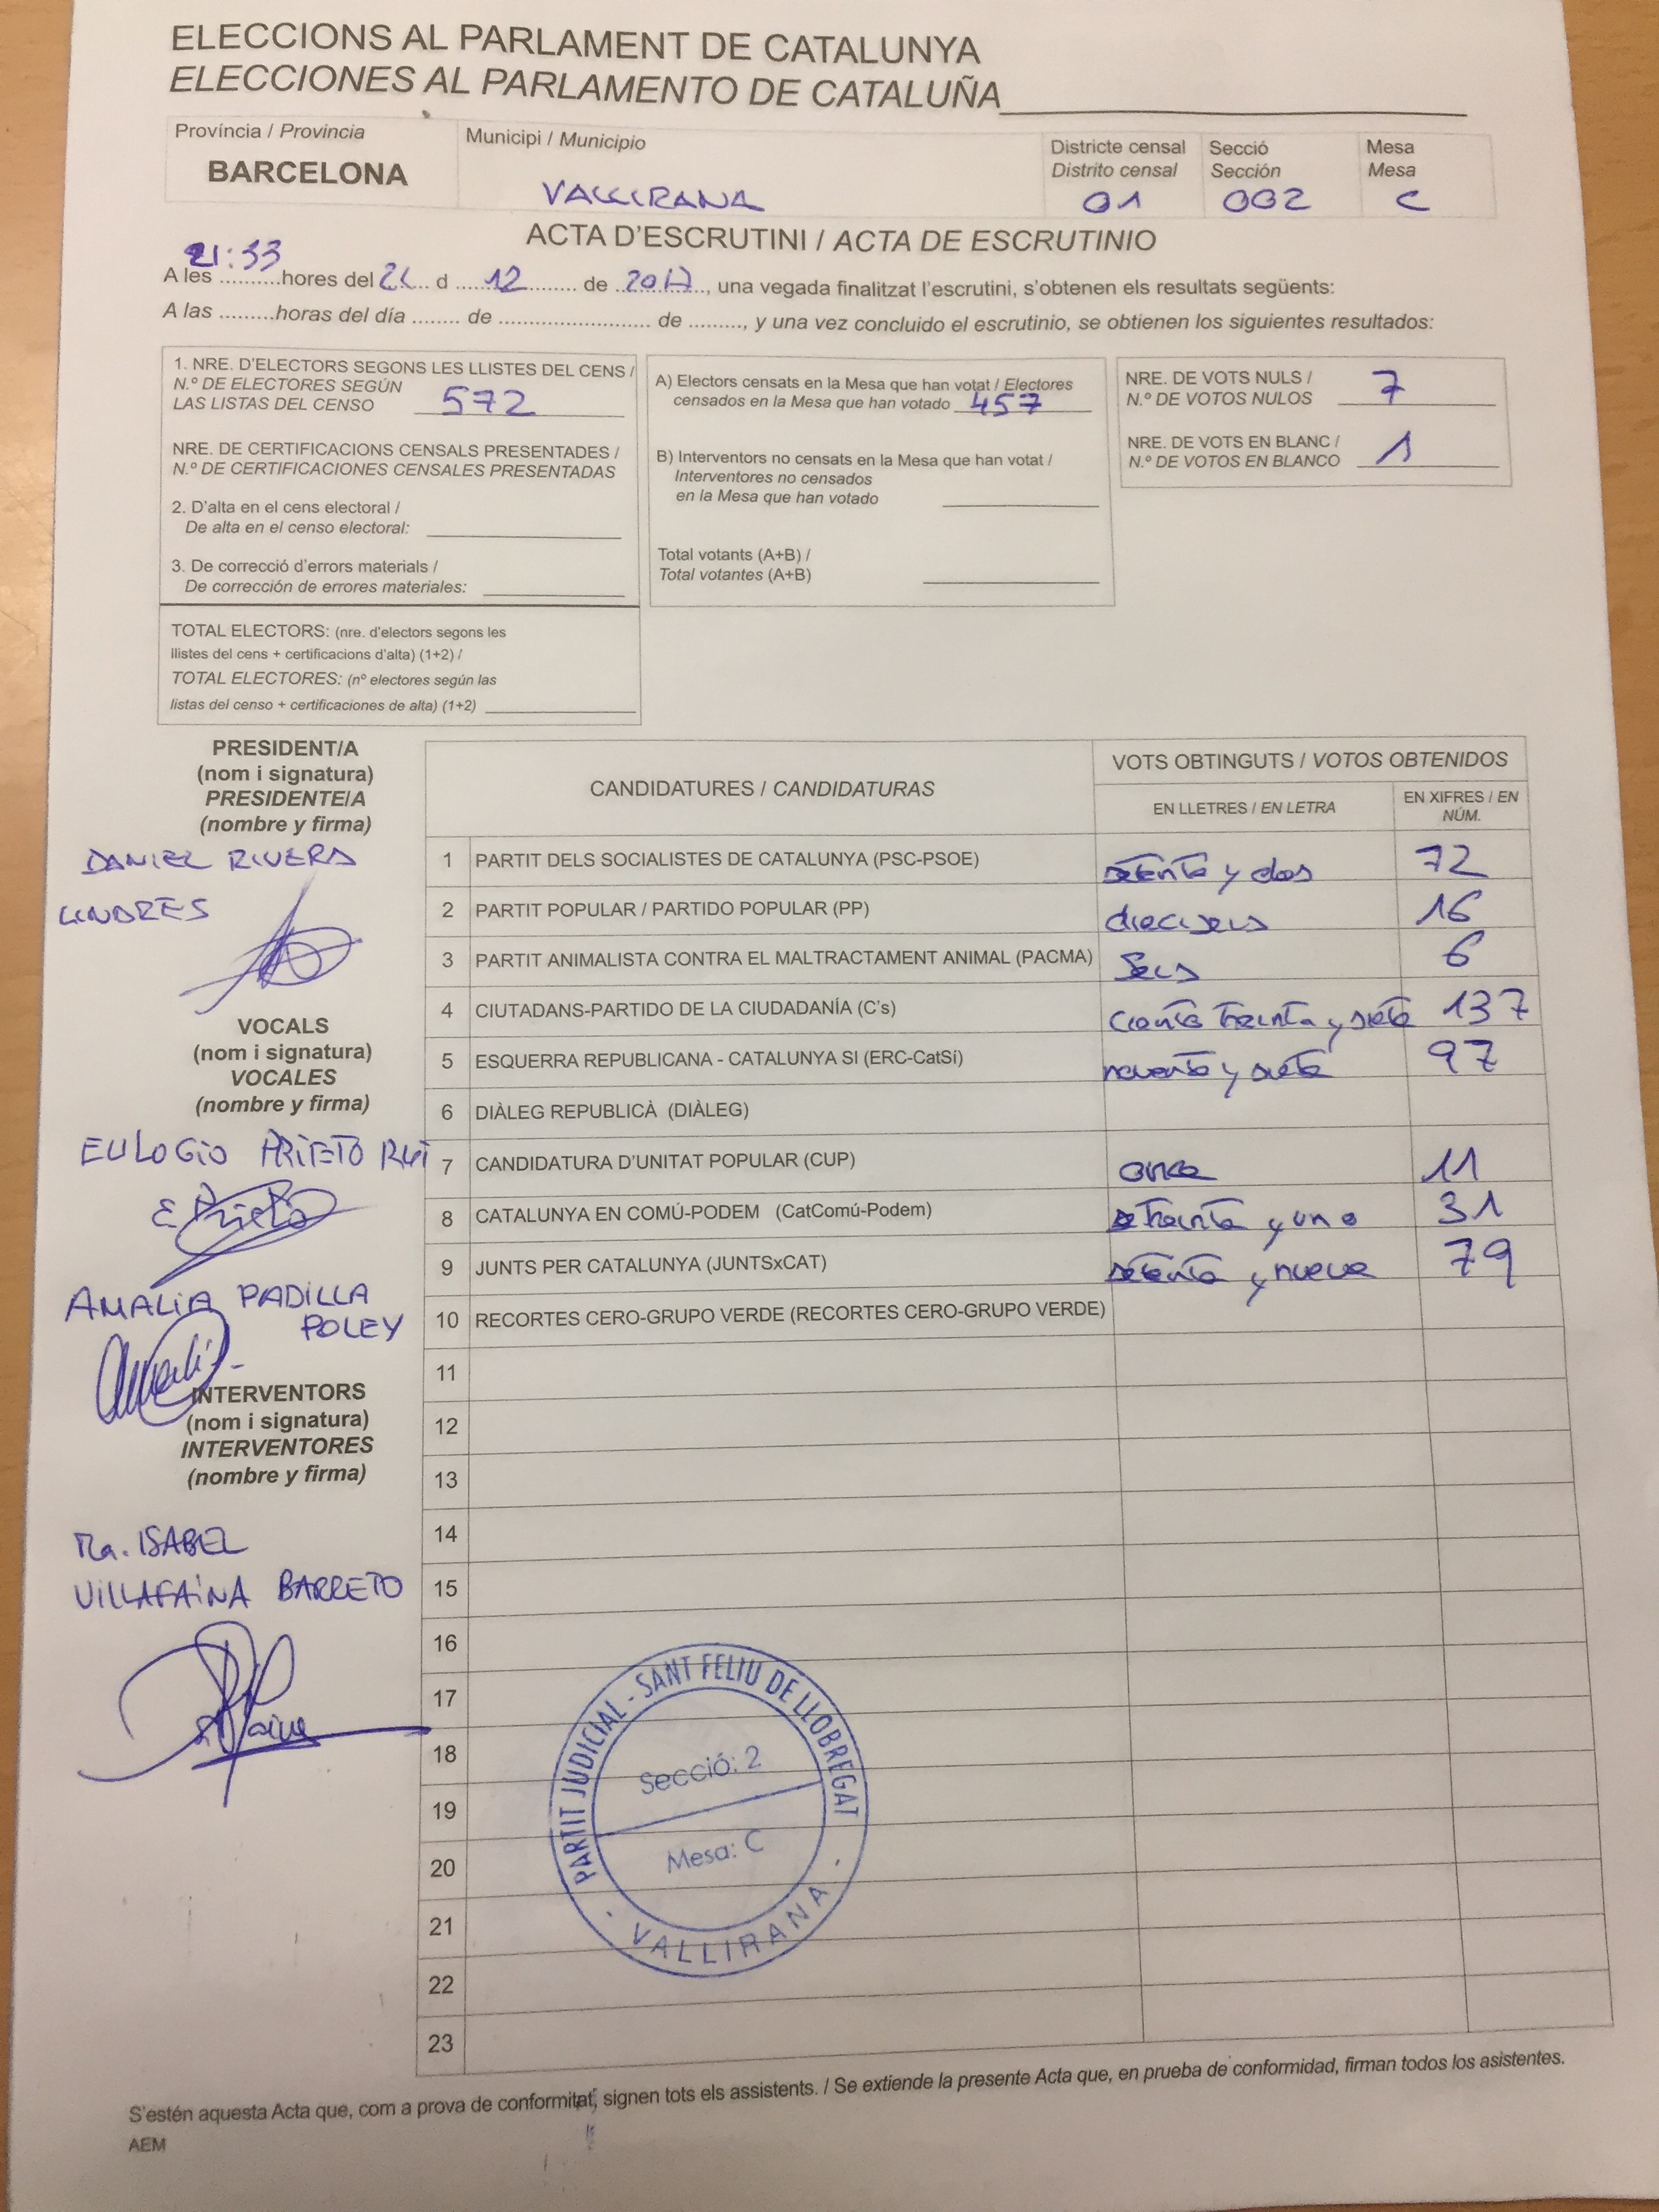 ELECCIONS AL PARLAMENT DE CATALUNYA
ELECCIONES AL PARLAMENTO DE CATALUÑA
Província / Provincia
BARCELONA
Municipi / Municipio
VALLIRANA
Districte censal
Distrito censal
01
Secció
Sección
002
Mesa
Mesa
C
ACTA D'ESCRUTINI / ACTA DE ESCRUTINIO
21:33
A les ..........hores del 21 d 12 de 2017, una vegada finalitzat l'escrutini, s'obtenen els resultats següents:
A las .........horas del día ........ de ............................ de ........., y una vez concluido el escrutinio, se obtienen los siguientes resultados:
1. NRE. D'ELECTORS SEGONS LES LLISTES DEL CENS /
N.º DE ELECTORES SEGÚN
LAS LISTAS DEL CENSO 572
NRE. DE CERTIFICACIONS CENSALS PRESENTADES /
N.º DE CERTIFICACIONES CENSALES PRESENTADAS
2. D'alta en el cens electoral /
De alta en el censo electoral:
3. De correcció d'errors materials /
De corrección de errores materiales:
TOTAL ELECTORS: (nre. d'electors segons les
llistes del cens + certificacions d'alta) (1+2) /
TOTAL ELECTORES: (nº electores según las
listas del censo + certificaciones de alta) (1+2)
A) Electors censats en la Mesa que han votat / Electores
censados en la Mesa que han votado 457
B) Interventors no censats en la Mesa que han votat /
Interventores no censados
en la Mesa que han votado
Total votants (A+B) /
Total votantes (A+B)
NRE. DE VOTS NULS /
N.º DE VOTOS NULOS 7
NRE. DE VOTS EN BLANC /
N.º DE VOTOS EN BLANCO 1
PRESIDENT/A
(nom i signatura)
PRESIDENTE/A
(nombre y firma)
DANIEL RIVERA
LINDRES
VOCALS
(nom i signatura)
VOCALES
(nombre y firma)
EULOGIO PRIETO RUI
E Prieto
AMALIA PADILLA
POLEY
INTERVENTORS
(nom i signatura)
INTERVENTORES
(nombre y firma)
Ma. ISABEL
VILLAFAINA BARRETO
CANDIDATURES / CANDIDATURAS
VOTS OBTINGUTS / VOTOS OBTENIDOS
EN LLETRES / EN LETRA
EN XIFRES / EN
NÚM.
1 PARTIT DELS SOCIALISTES DE CATALUNYA (PSC-PSOE) setenta y dos 72
2 PARTIT POPULAR / PARTIDO POPULAR (PP) dieciseis 16
3 PARTIT ANIMALISTA CONTRA EL MALTRACTAMENT ANIMAL (PACMA) Seis 6
4 CIUTADANS-PARTIDO DE LA CIUDADANÍA (C's) ciento treinta y siete 137
5 ESQUERRA REPUBLICANA - CATALUNYA SI (ERC-CatSí) noventa y siete 97
6 DIÀLEG REPUBLICÀ (DIÀLEG)
7 CANDIDATURA D'UNITAT POPULAR (CUP) once 11
8 CATALUNYA EN COMÚ-PODEM (CatComú-Podem) treinta y uno 31
9 JUNTS PER CATALUNYA (JUNTSxCAT) setenta y nueve 79
10 RECORTES CERO-GRUPO VERDE (RECORTES CERO-GRUPO VERDE)
11
12
13
14
15
16
17
18
19
20
21
22
23
PARTIT JUDICIAL - SANT FELIU DE LLOBREGAT
Secció: 2
Mesa: C
- VALLIRANA -
S'estén aquesta Acta que, com a prova de conformitat, signen tots els assistents. / Se extiende la presente Acta que, en prueba de conformidad, firman todos los asistentes.
AEM